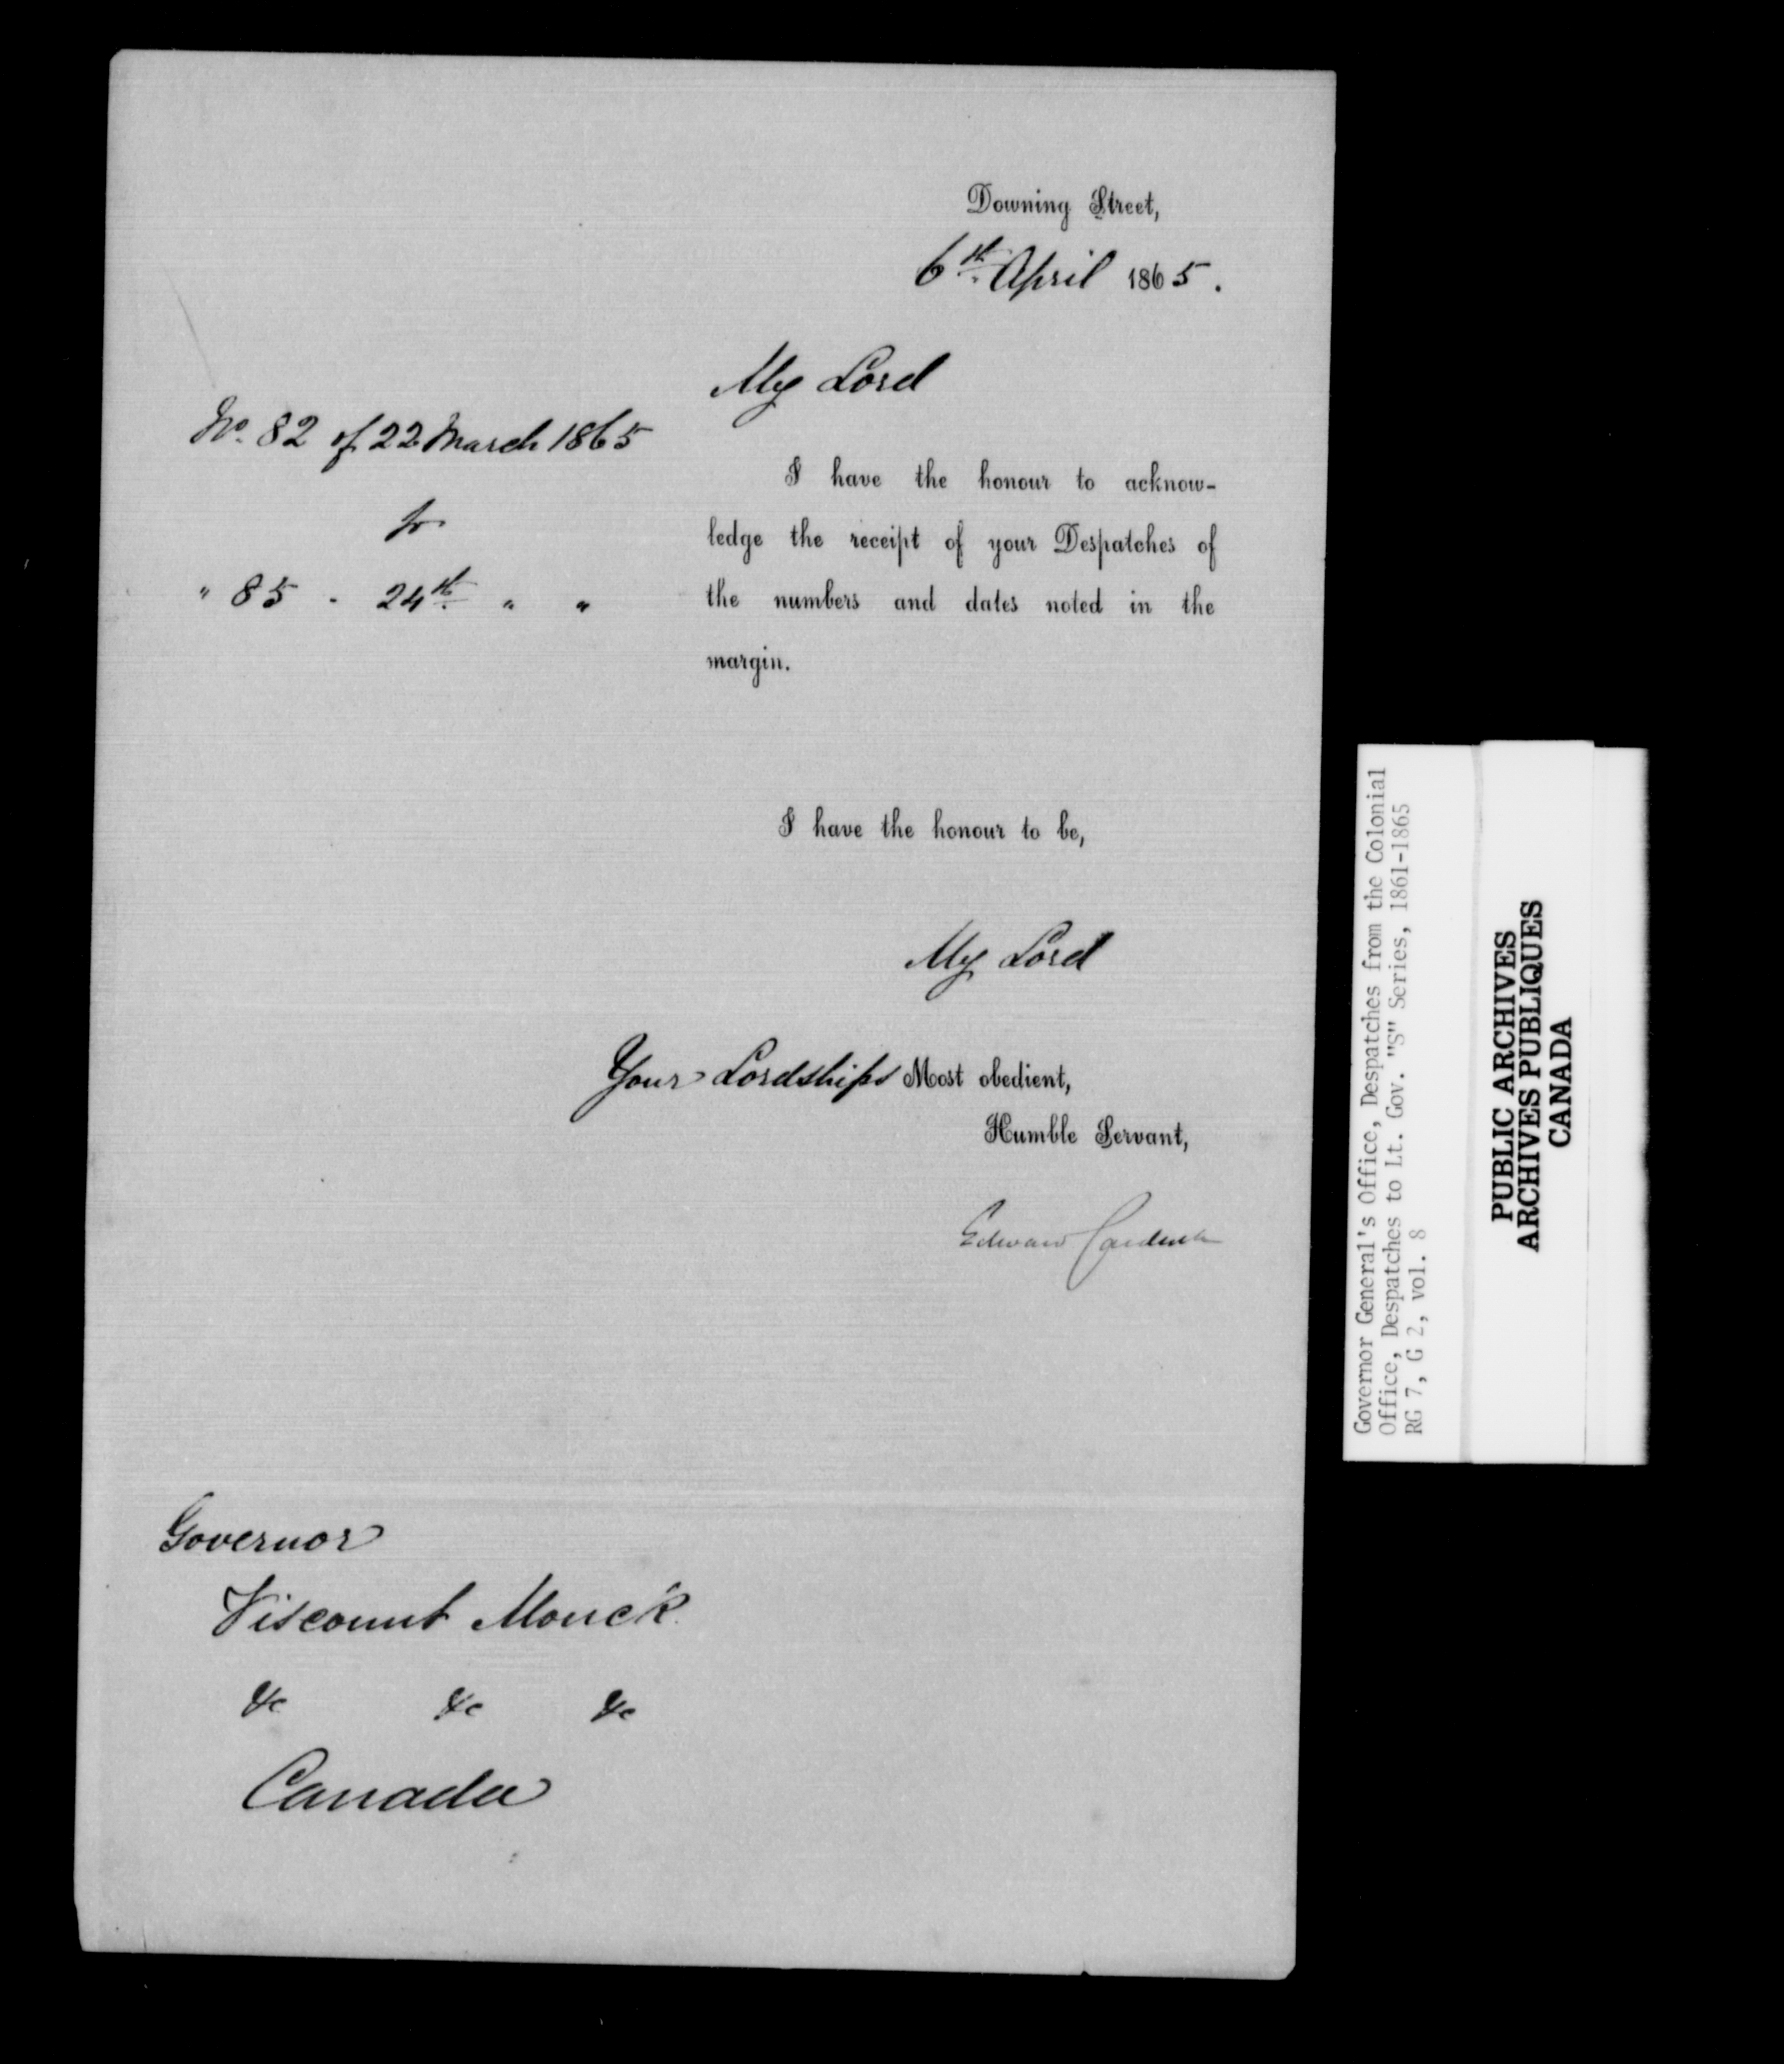 Downing Street,
6th April 1865.
My Lord
No. 82 of 22 March 1865
to
" 85 - 24th " "
I have the honour to acknow-
ledge the receipt of your Despatches of
the numbers and dates noted in the
margin.
I have the honour to be,
My Lord
Your Lordships Most obedient,
Humble Servant,
Edward Cardwell
Governor
Viscount Monck
&c &c &c
Canada
Governor General's Office, Despatches from the Colonial
Office, Despatches to Lt. Gov. "S" Series, 1861-1865
RG 7, G 2, vol. 8
PUBLIC ARCHIVES
ARCHIVES PUBLIQUES
CANADA